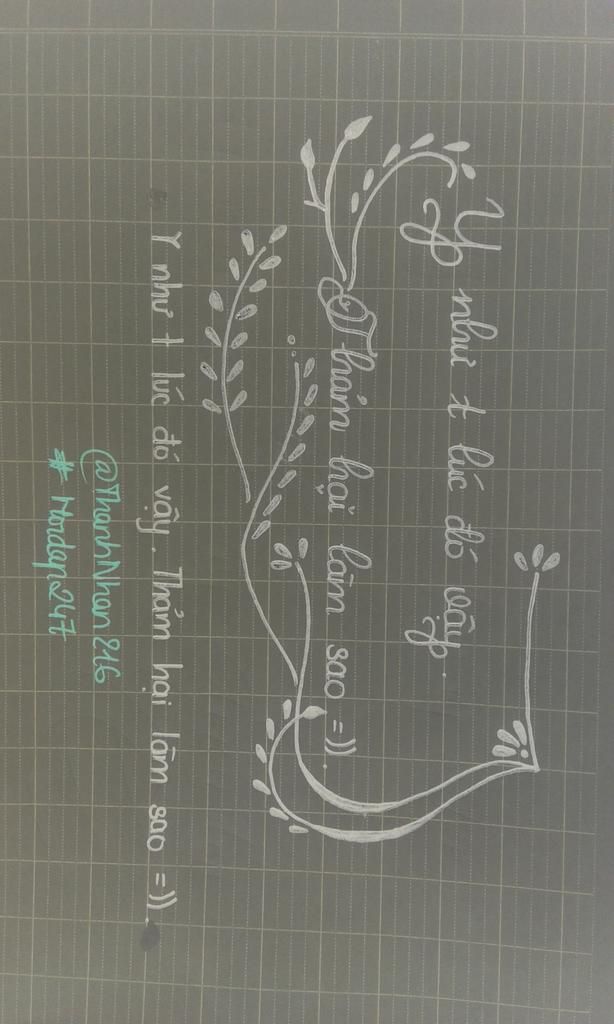 Y như t lúc đó vậy.
Thảm hại lắm sao =)).
Y như t lúc đó vậy. Thảm hại lắm sao =)).
@ThanhNhan816